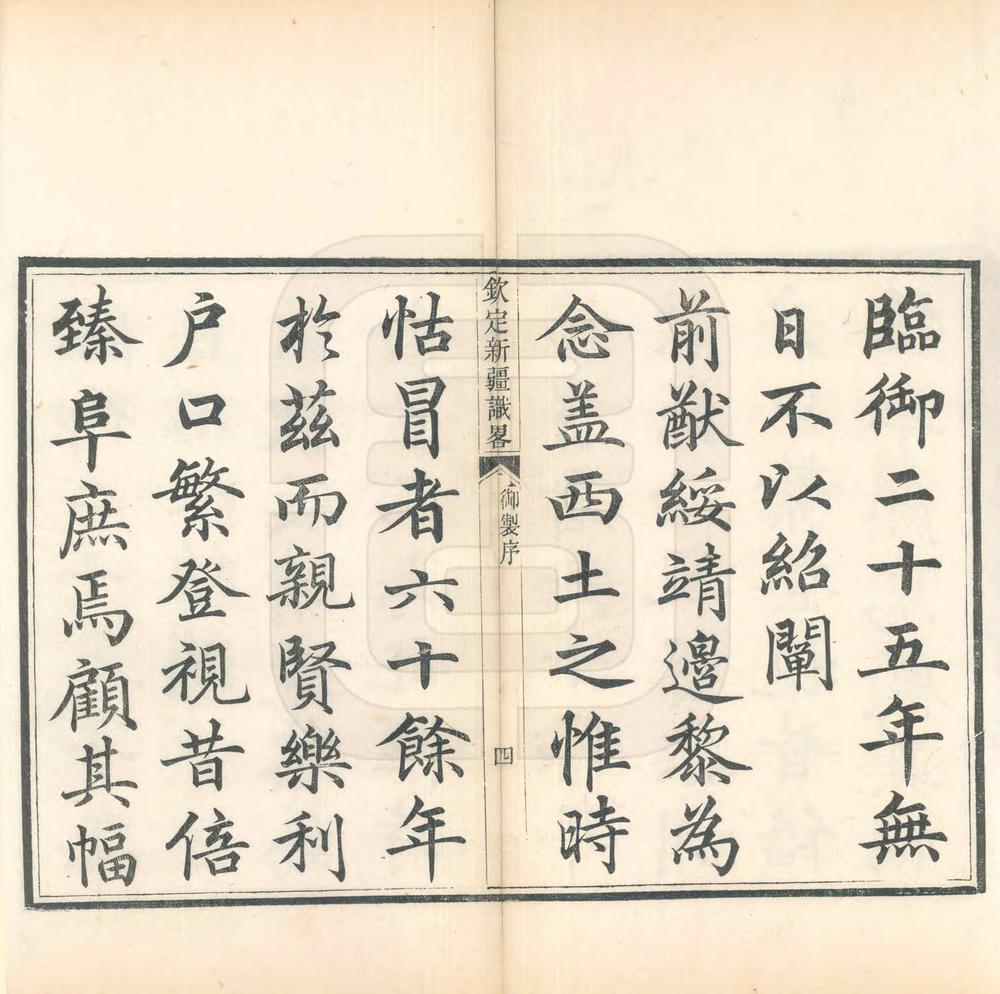 臨御二十五年無
日不以紹闡
前猷綏靖邊黎為
念盖西土之惟時
欽定新疆識畧
御製序
四
怙冒者六十餘年
於茲而親賢樂利
户口繁登視昔倍
臻阜庶焉顧其幅